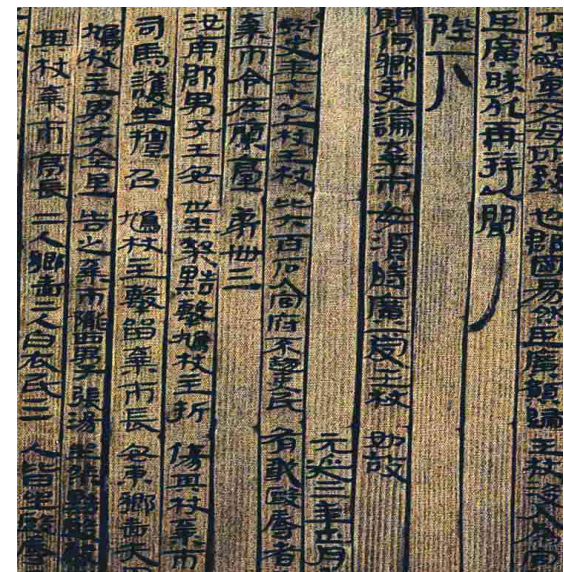 敬重父母所致也郡國易然臣廣願歸王杖沒入為官
臣廣昧死再拜以聞
陛下
問何鄉吏論棄市毋須時廣受王杖如故
元延三年正月
年七十以上杖王杖比六百石入官府不趨吏民有敢毆辱者
棄市令在蘭臺第卌三
汝南郡男子王安世坐桀黠擊鳩杖主折傷其杖棄市
司馬護坐擅召鳩杖主擊留棄市長安東鄉嗇夫
鳩杖主男子金里告之棄市隴西男子張湯坐桀黠毆擊
其杖棄市亭長二人鄉嗇二人白衣民三人皆坐毆辱